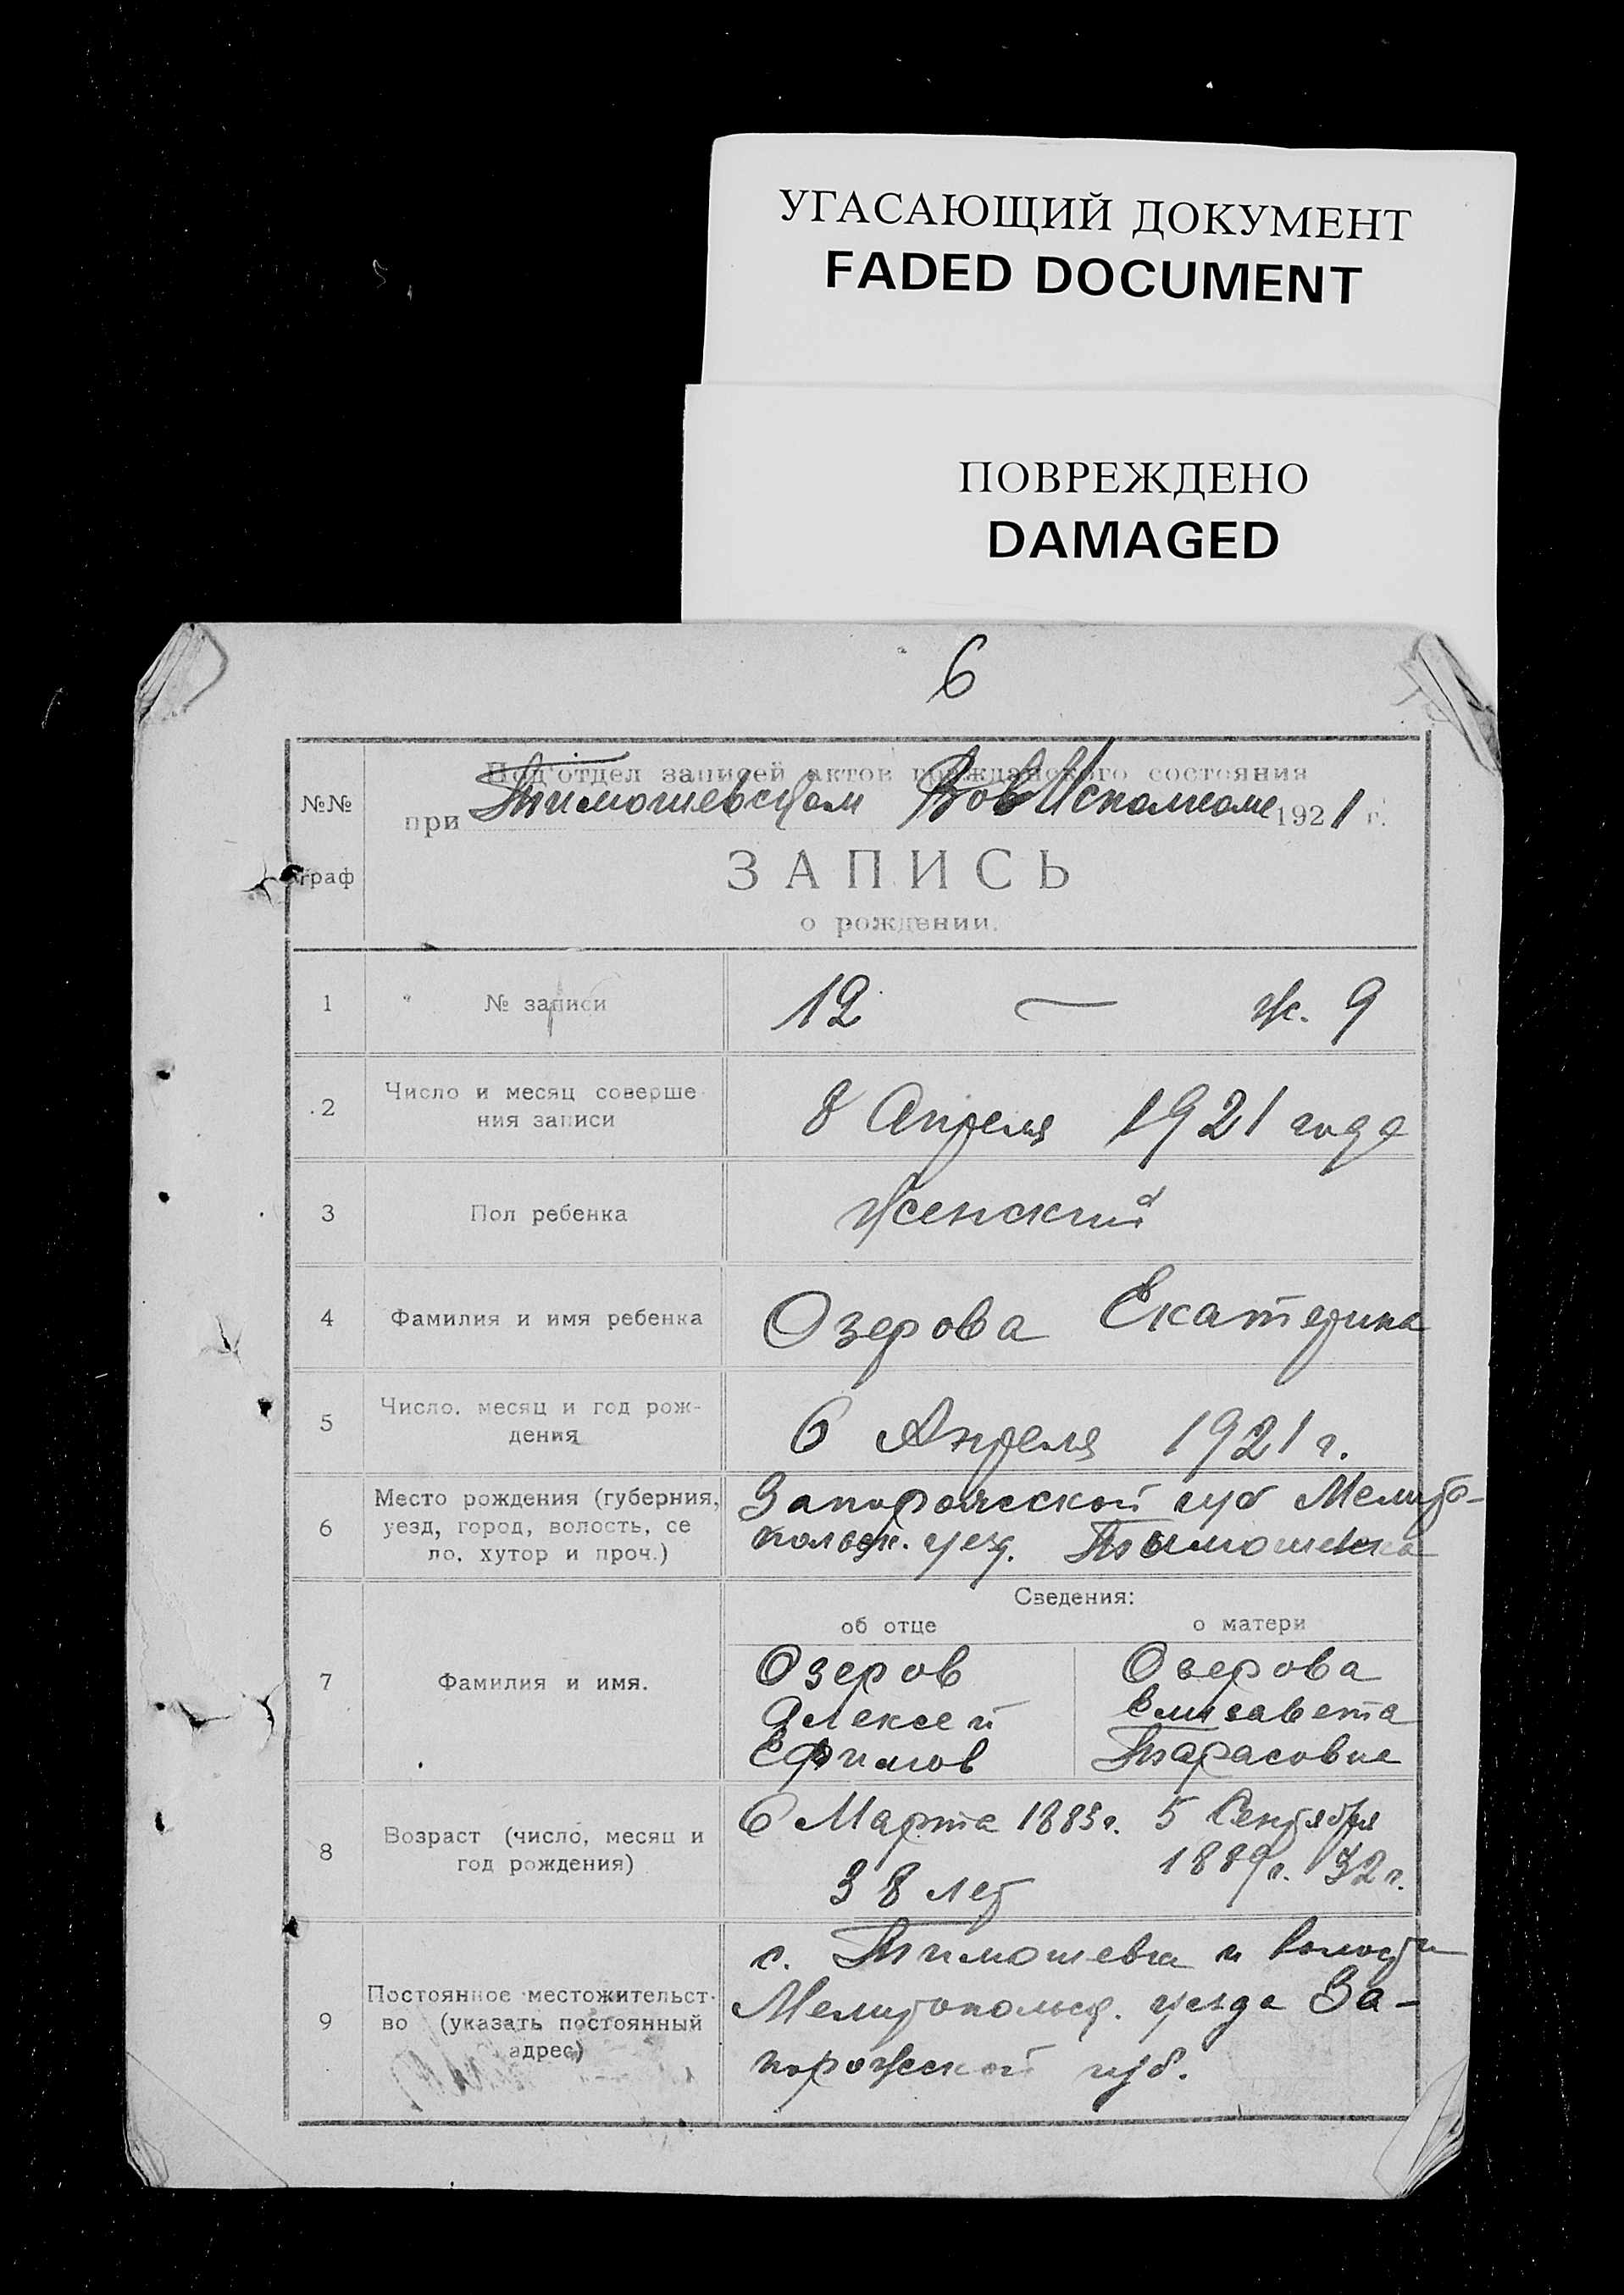 УГАСАЮЩИЙ ДОКУМЕНТ
FADED DOCUMENT
ПОВРЕЖДЕНО
DAMAGED
6
№№
граф
Подотдел записей актов гражданского состояния
при Тимошевском ВолИсполкоме 1921 г.
ЗАПИСЬ
о рождении.
1 № записи 12 — ж. 9
2 Число и месяц соверше
ния записи
8 Апреля 1921 года
3 Пол ребенка Женский
4 Фамилия и имя ребенка Озерова Екатерина
5 Число, месяц и год рож-
дения
6 Апреля 1921 г.
6 Место рождения (губерния,
уезд, город, волость, се
ло, хутор и проч.)
Запорожской губ Мелито-
польск. уезд. Тимошевка
Сведения:
об отце о матери
7 Фамилия и имя.
Озеров
Алексей
Ефимов
Озерова
Елисавета
Тарасовна
8 Возраст (число, месяц и
год рождения)
6 Марта 1883 г.
38 лет
5 Сентября
1889 г. 32 г.
9 Постоянное местожительст-
во (указать постоянный
адрес)
с. Тимошевка и волости
Мелитопольск. уезда За-
порожской губ.